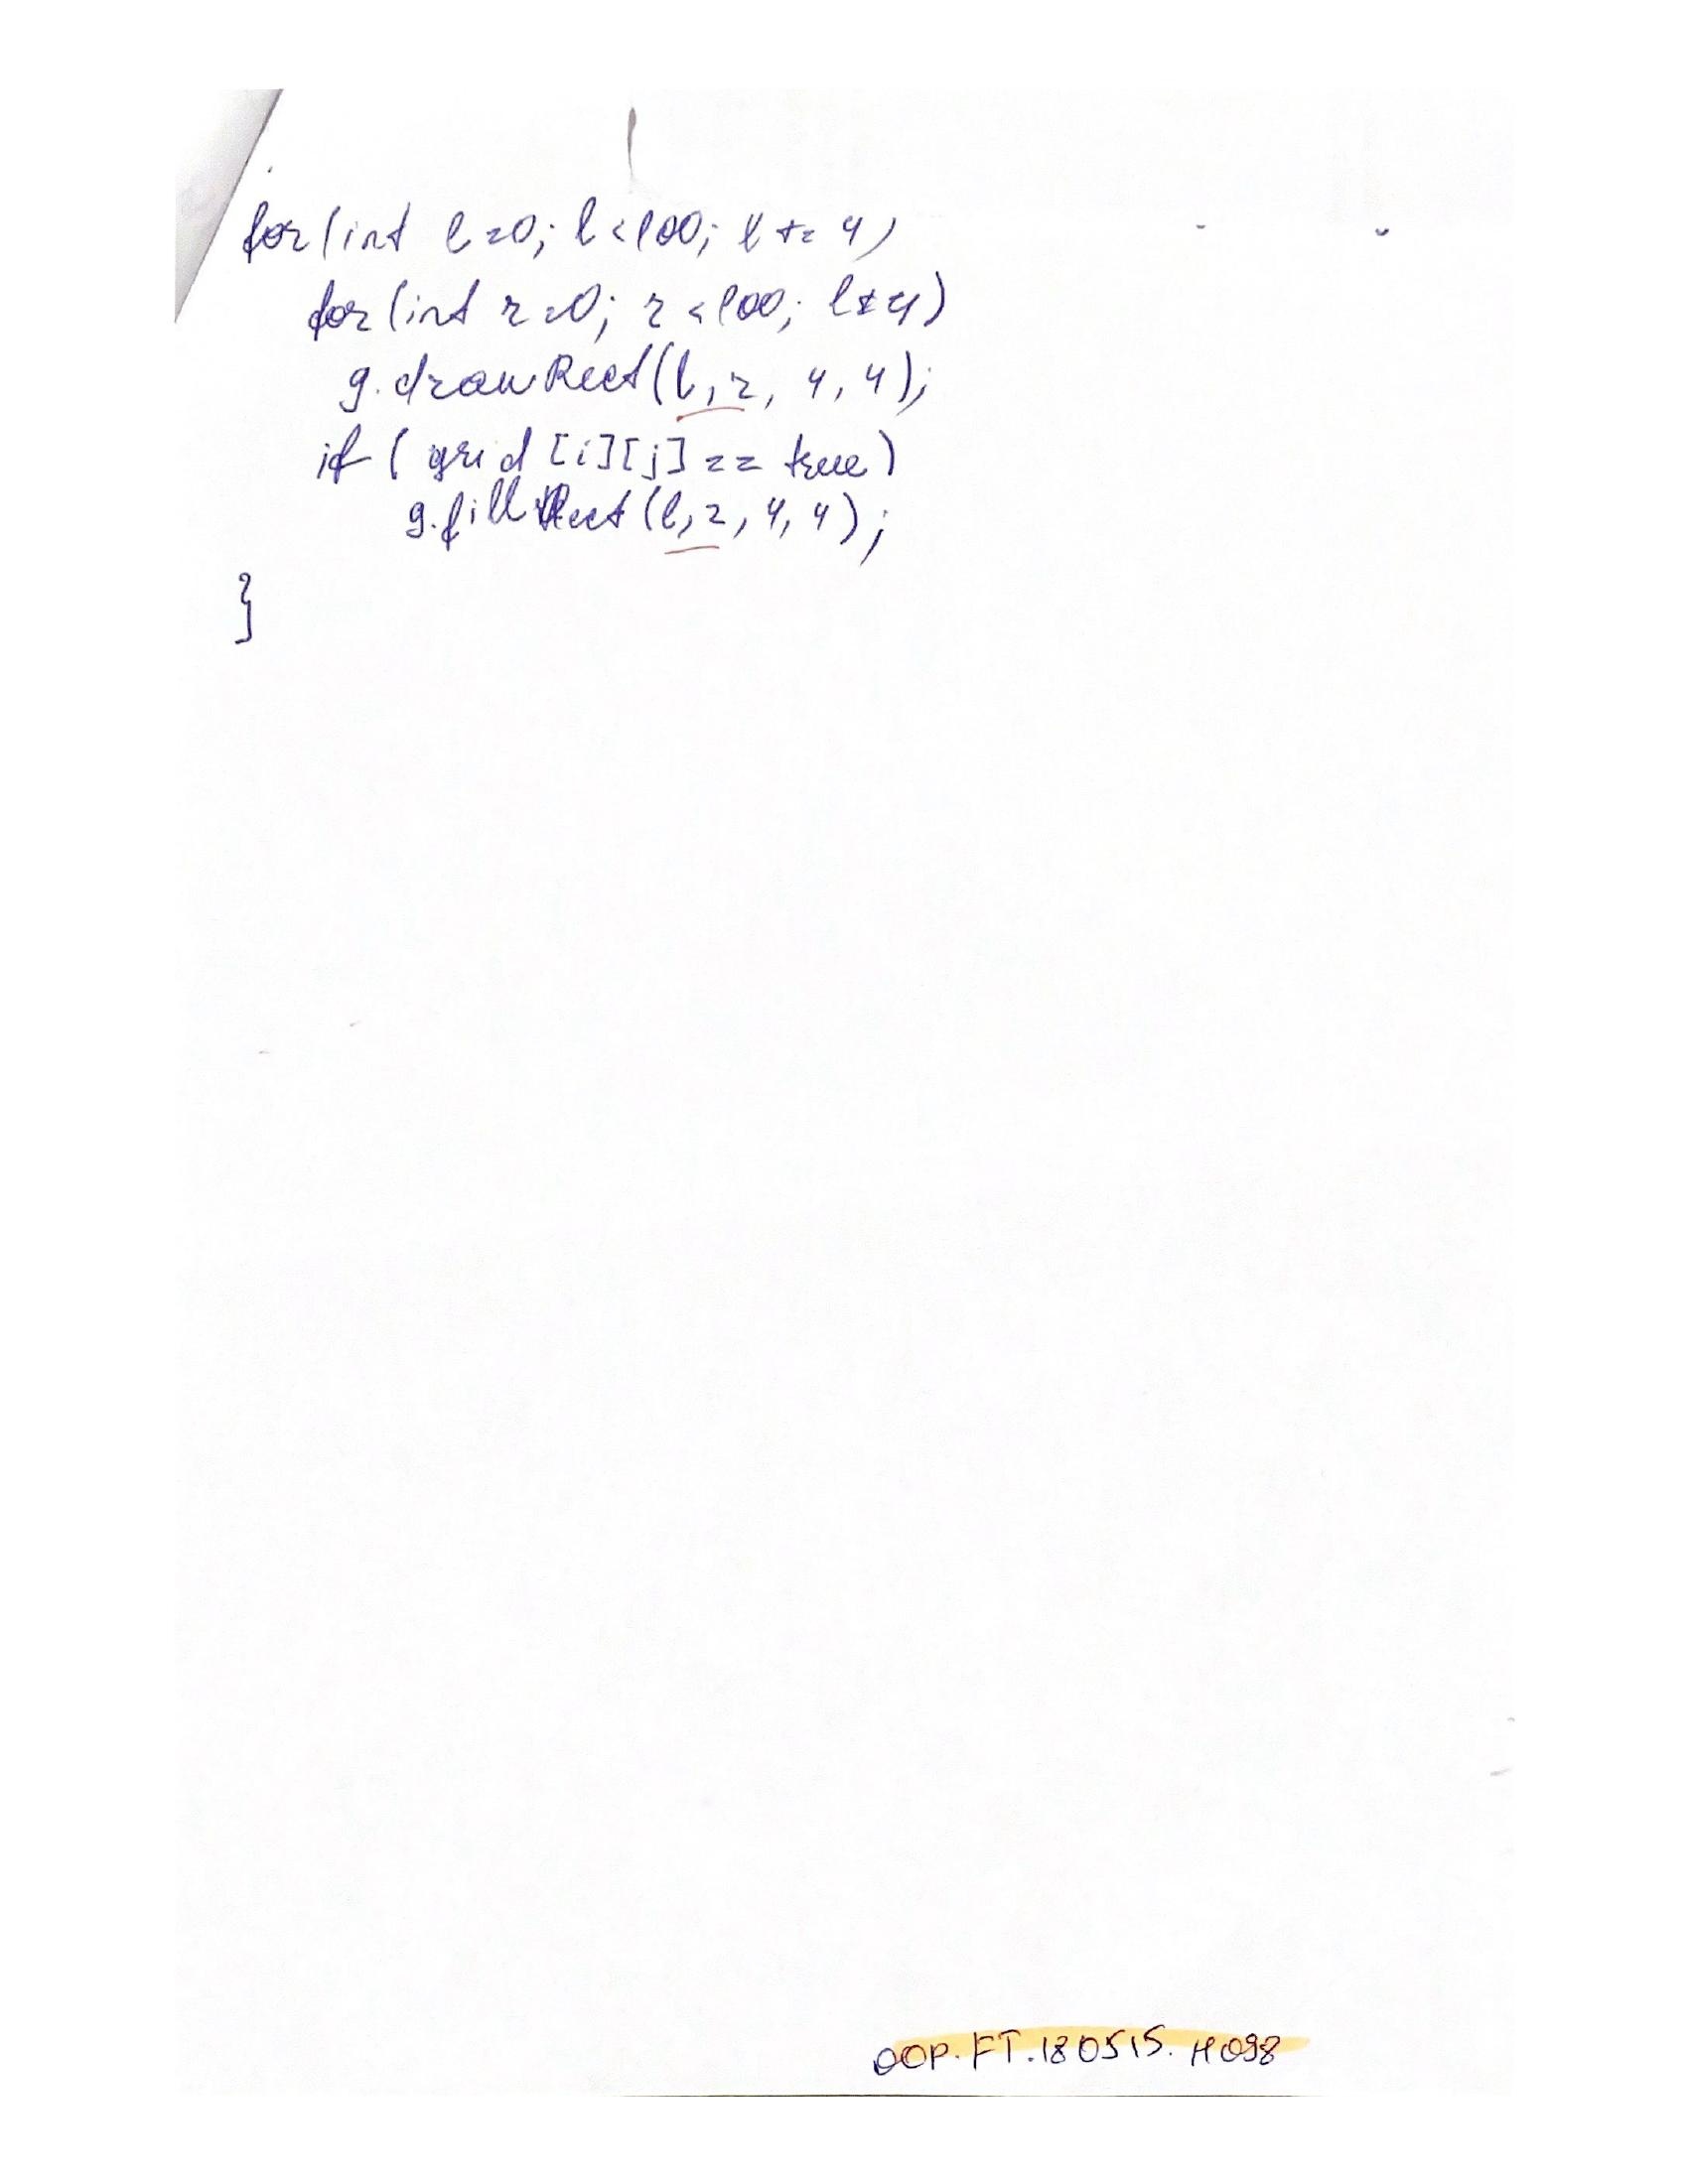 for(int l=0; l<100; l += 4)
for(int r=0; r<100; l+=4)
g.drawRect(l, r, 4, 4);
if (grid[i][j] == true)
g.fillRect(l, r, 4, 4);
}
OOP.FT.180515.M098